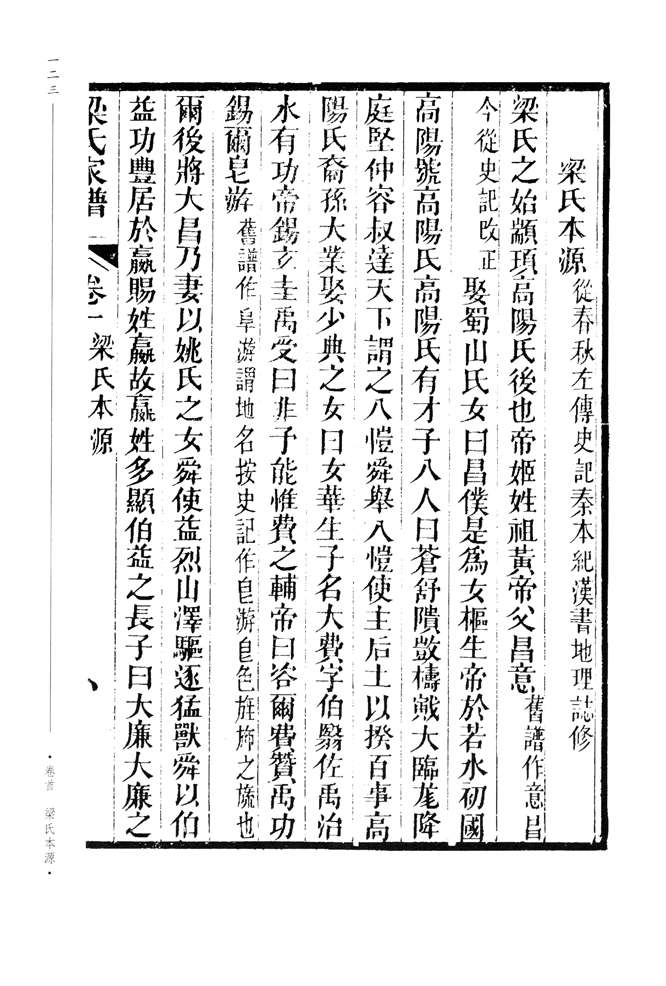 梁氏本源從春秋左傳史記秦本紀漢書地理誌修
梁氏之始顓頊高陽氏後也帝姬姓祖黃帝父昌意舊譜作意昌
今從史記改正娶蜀山氏女曰昌僕是為女樞生帝於若水初國
高陽號高陽氏高陽氏有才子八人曰蒼舒隤敳檮戭大臨尨降
庭堅仲容叔達天下謂之八愷舜舉八愷使主后土以揆百事高
陽氏裔孫大業娶少典之女曰女華生子名大費字伯翳佐禹治
水有功帝錫玄圭禹受曰非予能惟費之輔帝曰咨爾費贊禹功
錫爾皂游舊譜作阜游謂地名按史記作皂游皂色旌斾之旒也
爾後將大昌乃妻以姚氏之女舜使益烈山澤驅逐猛獸舜以伯
益功豐居於嬴賜姓嬴故嬴姓多顯伯益之長子曰大廉大廉之
梁氏家譜 卷一 梁氏本源 八
一二三
·卷首 梁氏本源·